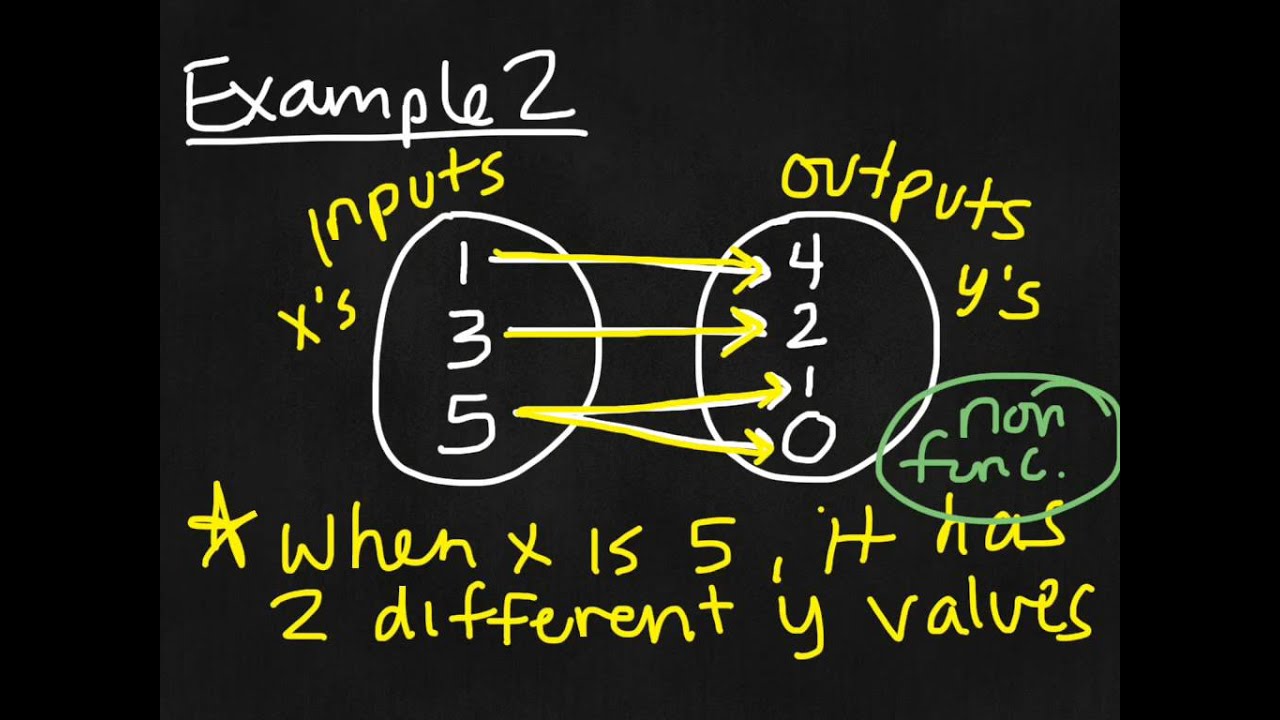 Example 2
inputs
outputs
x's
y's
1
4
3
2
5
1
0
non
func.
When x is 5, it has
2 different y values